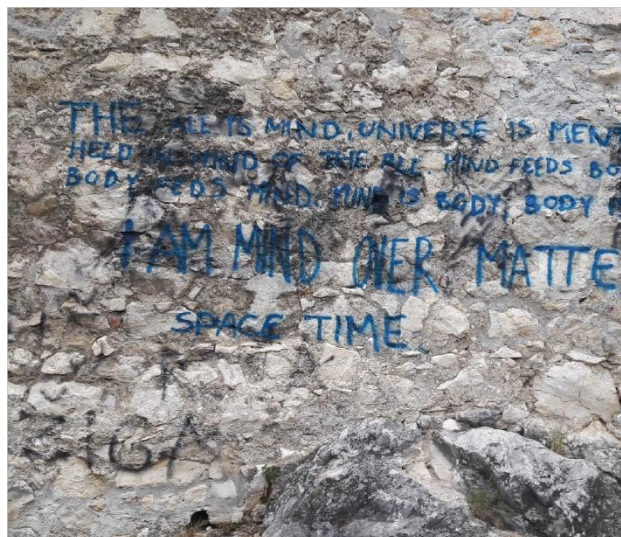 THE ALL IS MIND, UNIVERSE IS MEN
HELD IN MIND OF THE ALL. MIND FEEDS BO
BODY FEDS MIND. MIND IS BODY, BODY
I AM MIND OVER MATTE
SPACE TIME.